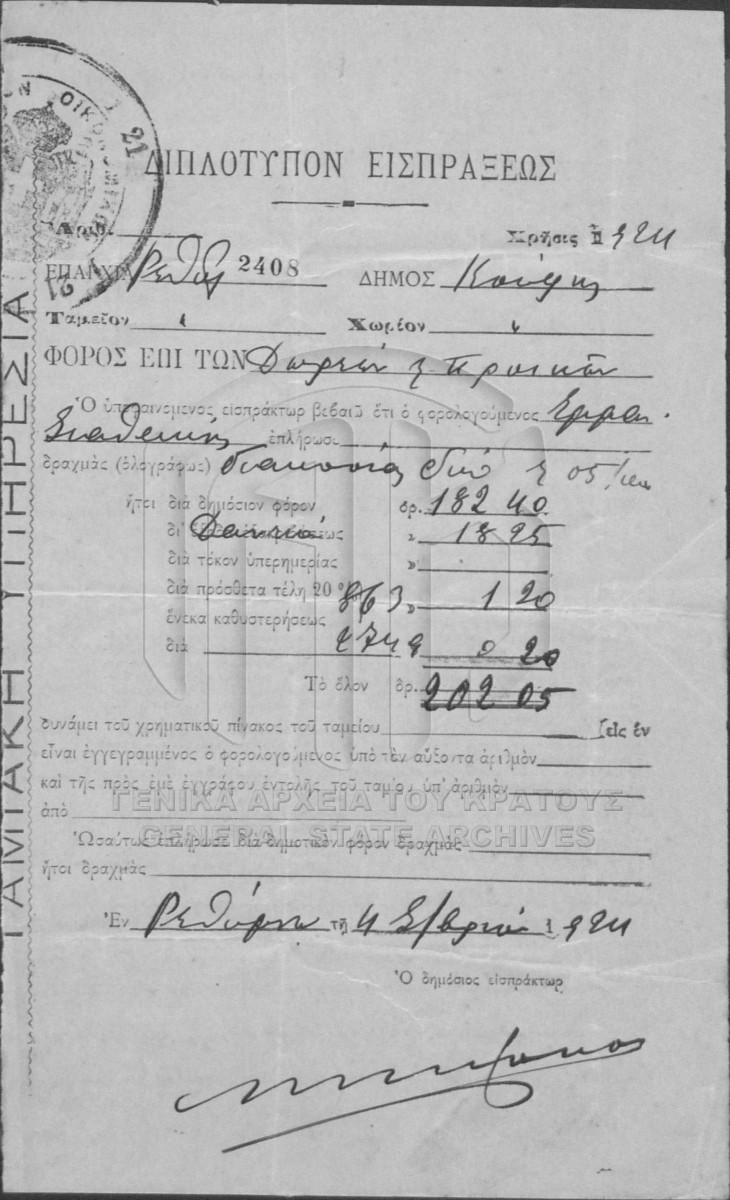 21
ΔΙΠΛΟΤΥΠΟΝ ΕΙΣΠΡΑΞΕΩΣ
Ἀριθ.
Χρῆσις 1924
ΕΠΑΡΧΙΑ Ρεθύ 2408 ΔΗΜΟΣ
Ταμεῖον " Χωρίον "
ΦΟΡΟΣ ΕΠΙ ΤΩΝ Δωρεῶν & Προικῶν
Ὁ ὑποφαινόμενος εἰσπράκτωρ βεβαιῶ ὅτι ὁ φορολογούμενος Ἐμμαν.
ἐπλήρωσε
δραχμὰς (ὁλογράφως) διακοσίας δύο & 05/100
ἤτοι διὰ δημόσιον φόρον δρ. 182 40
18 25
διὰ τόκον ὑπερημερίας »
διὰ πρόσθετα τέλη 20 863 » 1 20
ἕνεκα καθυστερήσεως
διὰ 2749 0 20
Τὸ ὅλον δρ. 202 05
δυνάμει τοῦ χρηματικοῦ πίνακος τοῦ ταμείου [εἰς ἐν
εἶναι ἐγγεγραμμένος ὁ φορολογούμενος ὑπὸ τὸν αὔξοντα ἀριθμὸν
καὶ τῆς πρὸς ἐμὲ ἐγγράφου ἐντολῆς τοῦ ταμίου ὑπ' ἀριθμὸν
ΓΕΝΙΚΑ ΑΡΧΕΙΑ ΤΟΥ ΚΡΑΤΟΥΣ
ἀπὸ
GENERAL STATE ARCHIVES
Ὡσαύτως ἐπλήρωσε διὰ δημοτικὸν φόρον δραχμὰς
ἤτοι δραχμὰς
Ἐν Ρεθύμνῃ τῇ 4 1924
Ὁ δημόσιος εἰσπράκτωρ
ΤΑΜΙΑΚΗ ΥΠΗΡΕΣΙΑ